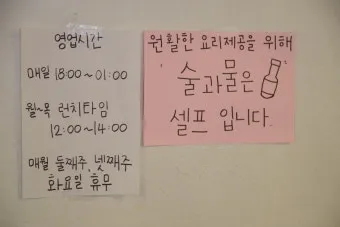 영업시간
매일 18:00~01:00
월~목 런치타임
12:00~14:00
매월 둘째주, 넷째주
화요일 휴무
원활한 요리제공을 위해
술과물은
셀프 입니다.